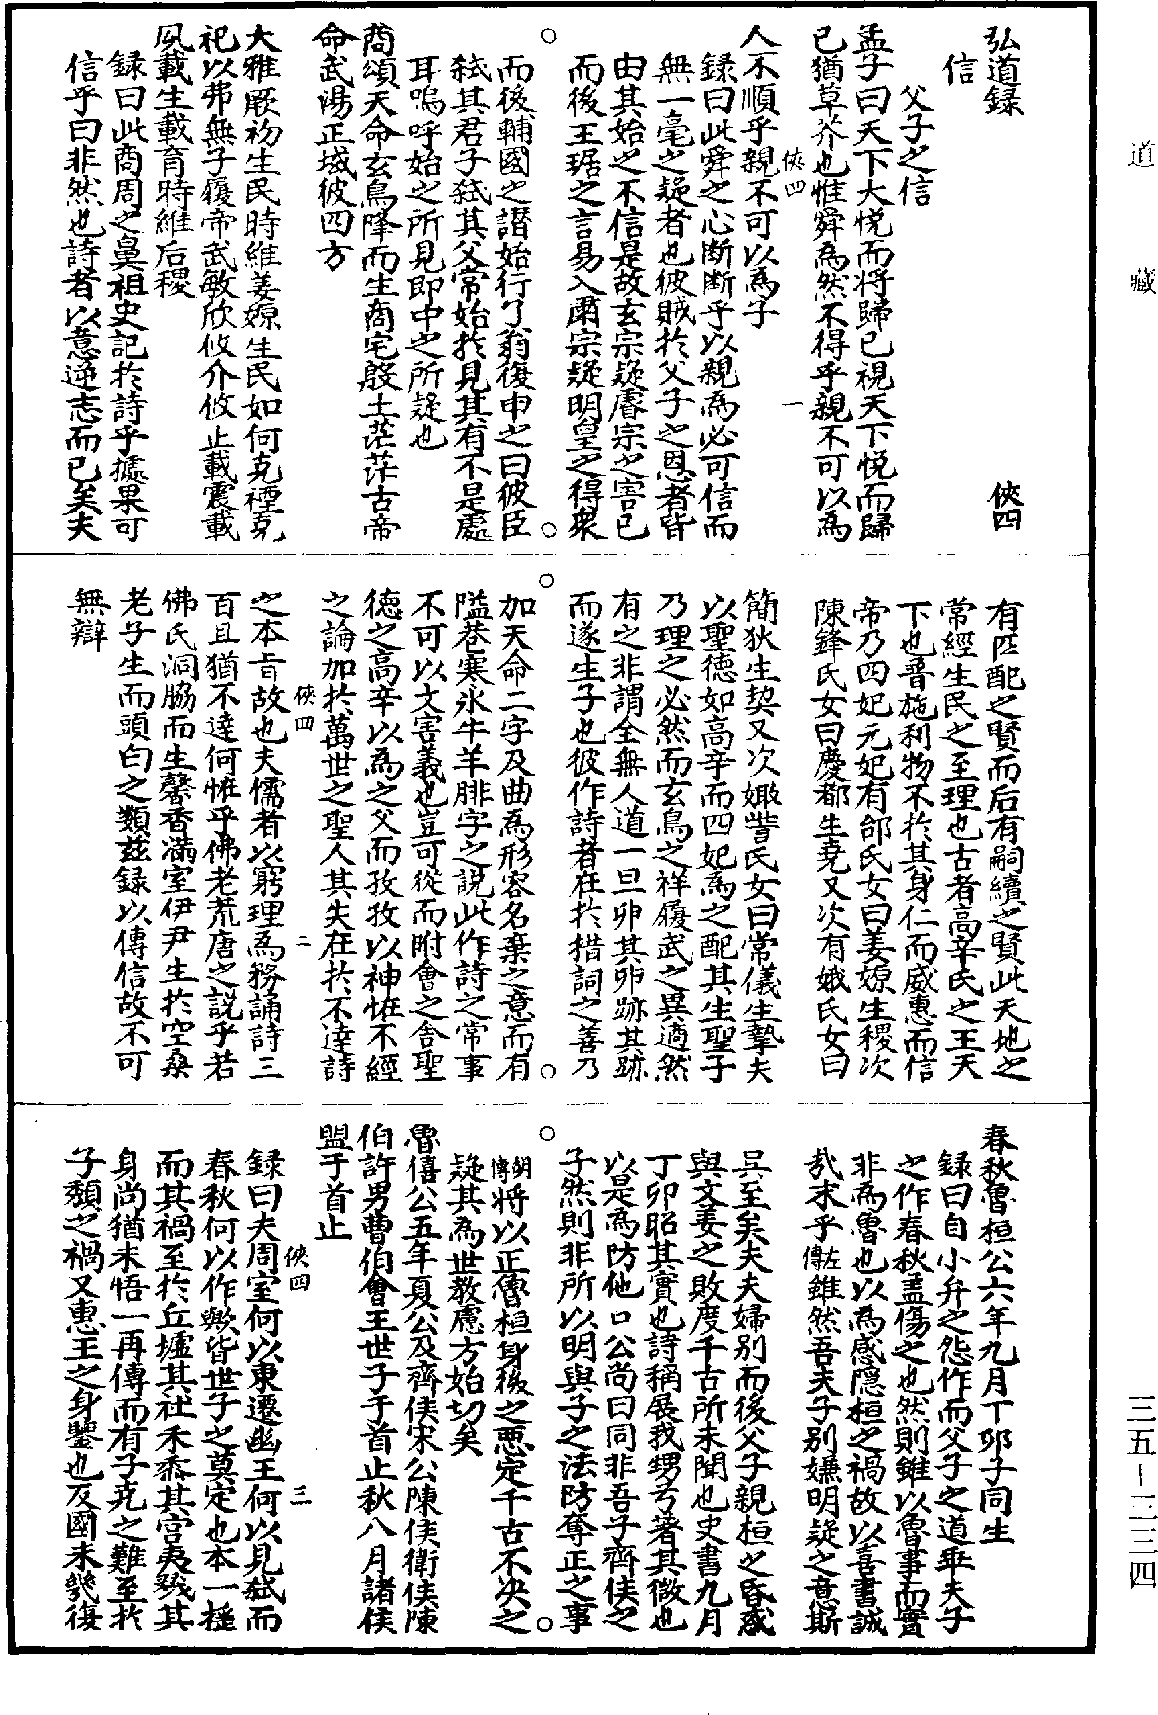 道藏
三五—三三四
弘道録　俠四
信
父子之信
孟子曰天下大悦而将歸已視天下悦而歸
已猶草芥也惟舜為然不得乎親不可以為
俠四　一
人不順乎親不可以為子
録曰此舜之心断断乎以親為必可信而
無一毫之疑者也彼賊於父子之恩者皆
由其始之不信是故玄宗疑睿宗之害已
而後王琚之言易入肅宗疑明皇之得衆
而後輔國之譖始行了翁復申之曰彼臣
弑其君子弑其父常始於見其有不是處
耳嗚呼始之所見即中之所疑也
商頌天命玄鳥降而生商宅殷土茫茫古帝
命武湯正域彼四方
大雅厥初生民時維姜嫄生民如何克禋克
祀以弗無子履帝武敏欣攸介攸止載震載
夙載生載育時維后稷
録曰此商周之鼻祖史記於詩乎據果可
信乎曰非然也詩者以意逆志而已矣夫
有匹配之賢而后有嗣續之賢此天地之
常經生民之至理也古者高辛氏之王天
下也普施利物不於其身仁而威惠而信
帝乃四妃元妃有邰氏女曰姜嫄生稷次
陳鋒氏女曰慶都生堯又次有娥氏女曰
簡狄生契又次娵訾氏女曰常儀生摯夫
以聖徳如高辛而四妃為之配其生聖子
乃理之必然而玄鳥之祥履武之異適然
有之非謂全無人道一旦卵其卵跡其跡
而遂生子也彼作詩者在於措詞之善乃
加天命二字及曲為形容名棄之意而有
隘巷寒氷牛羊腓字之説此作詩之常事
不可以文害義也豈可從而附會之舍聖
徳之高辛以為之父而孜孜以神恠不經
之論加於萬世之聖人其失在於不達詩
俠四　二
之本旨故也夫儒者以窮理為務誦詩三
百且猶不達何恠乎佛老荒唐之説乎若
佛氏洞脇而生馨香滿室伊尹生於空桑
老子生而頭白之類兹録以傳信故不可
無辯
春秋魯桓公六年九月丁卯子同生
録曰自小弁之怨作而父子之道乖夫子
之作春秋盖傷之也然則雖以魯事而實
非為魯也以為感隱桓之禍故以喜書誠
㢤末乎左傳雖然吾夫子别嫌明疑之意斯
具至矣夫夫婦别而後父子親桓之昏惑
與文姜之敗度千古所未聞也史書九月
丁卯昭其實也詩稱展我甥兮著其微也
以是為防他日公尚曰同非吾子齊侯之
子然則非所以明與子之法防奪正之事
胡傳將以正魯桓身後之惡定千古不决之
疑其為世教慮方始切矣
魯僖公五年夏公及齊侯宋公陳侯衛侯陳
伯許男曹伯會王世子于首止秋八月諸侯
盟于首止
俠四　三
録曰夫周室何以東遷幽王何以見弑而
春秋何以作歟皆世子之莫定也本一揺
而其禍至於丘墟其社禾黍其宫夷殘其
身尚猶未悟一再傳而有子克之難至於
子頽之禍又惠王之身鑒也反國未幾復